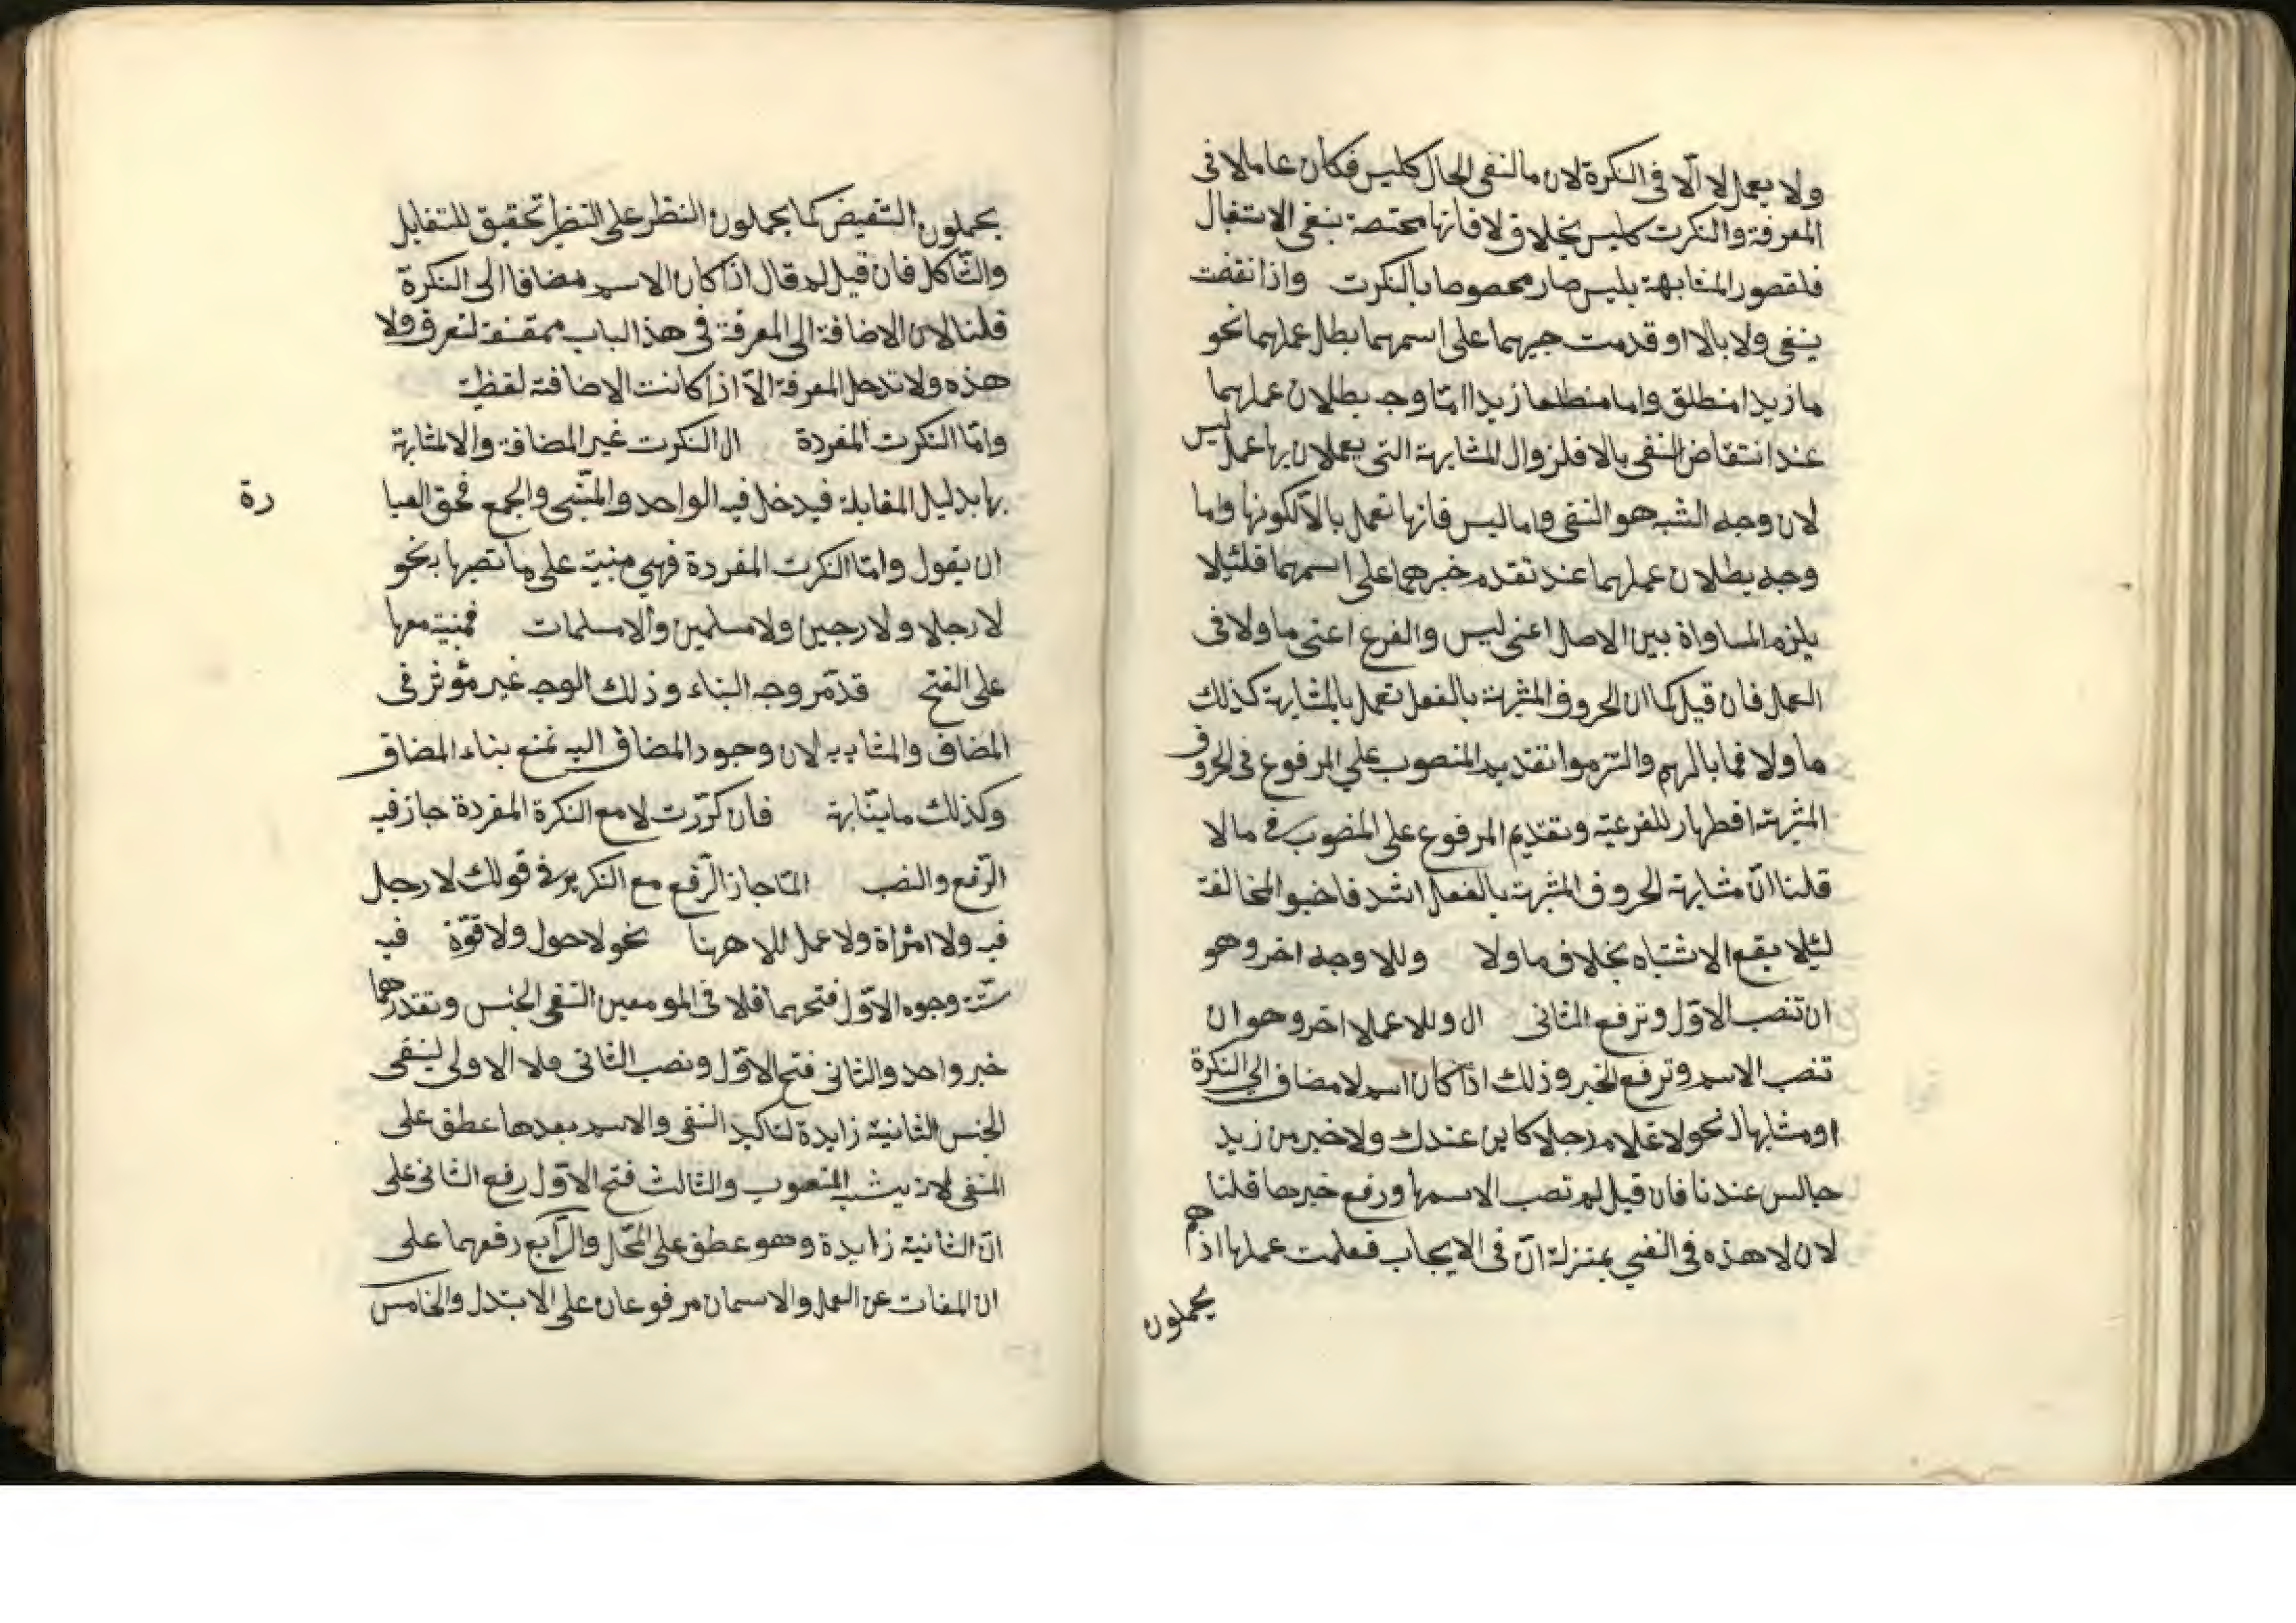 ولا يعمل لا الّا فى النكرة لان ما لنفى الحال كليس فكان عاملا فى
المعرفة والنكرت كليس بخلاق لا فانها مختصة بنفى الاستقبال
فلقصور المشابهة بليس صار مخصوصا بالنكرت واذا نقضت
ينفى ولا بالا او قدمت خبرهما على اسمهما بطل عملهما نحو
ما زيدا منطلق واما منطلعا زيدا امّا وجه بطلان عملهما
عند انتقاض النفى بالا فلزوال المشابهة التى يعملان بها عمل ليس
لان وجه الشبه هو النفى واما ليس فانها تعمل بالا لكونها واما
وجه بطلان عملهما عند تقدم خبرهما على اسمهما فلئيلا
يلزم المساواة بين الاصل اعنى ليس والفرع اعنى ما ولا فى
العمل فان قيل كما ان الحروف المشبهة بالفعل تعمل بالمشابهة كذلك
ما ولا فما بالهم والتزموا تقديم المنصوب على المرفوع فى الحروف
المشبهة اظهار للفرعية وتقديم المرفوع على المنصوب فى ما لا
قلنا انّ مشابهة الحروف المشبهة بالفعل اشد فاختبوا المخالفة
لئيلا يقع الاشتباه بخلاف ما ولا وللا وجه اخر وهو
ان تنصب الاوّل وترفع الثانى ال وللا عملا اخر وهو ان
تنصب الاسم وترفع الخبر وذلك اذا كان اسم لا مضاف الى النكرة
او مشابها لـ نحو لا غلام رجلا كاين عندك ولا خير من زيد
جالس عندنا فان قيل لم تصب الاسمها ورفع خبرها قلنا
لان لا هذه فى النفى بمنزلة انّ فى الايجاب فعلمت عملها اذ هم
يحملون
يحملون النقيض كما يحملون النظر على النظير تحقيق للتقابل
والتشاكل فان قيل لم قال اذا كان الاسم مضافا الى النكرة
قلنا لان الاضافة الى المعرفة فى هذا الباب ممتنعة لتعرف ولا
هذه ولا تدخل المعرفة الّا اذا كانت الاضافة لفظية
وامّا النكرت المفردة ال النكرت غير المضافة والا لمشابهة
بها بدليل المقابلة فيدخل فيه الواحد والمثنى والجمع فحق العبا
رة
ان يقول وامّا النكرت المفردة فهى مبنية على ما تصبها بنحو
لا رجلا ولا رجين ولا مسلمين والا مسلمات فمبنية معها
على الفتح قد مّر وجه البناء وذلك الوجه غير مؤثر فى
المضاف والمشابه به لان وجود المضاف اليه تمنع بناء المضاق
وكذلك ما يشابهة فان كرّرت لا مع النكرة المفردة جاز فيه
الرّفع والنصب امّا جاز الرّفع مع التكرير فى قولك لا رجل
فيه ولا امراة ولا عمل للا هرنا نحو لا حول ولا قوّة فيه
ستّة وجوه الاوّل فتحهما فلا فى المومعين النفى الجنس وتقدرهما
خبر واحد والثانى فتح الاوّل ونصب الثانى فلا الاولى لنفى
الجنس الثانية زايدة لتاكيد النفى والاسم بعدها عطق على
المنفى لان يشبه المنصوب والثالث فتح الاوّل رفع الثانى على
انّ الثانية زايدة وهو عطق على المحّل والرّابع رفعهما على
ان المفات عن العمل والاسمان مرفوعان على الابتدل والخامس